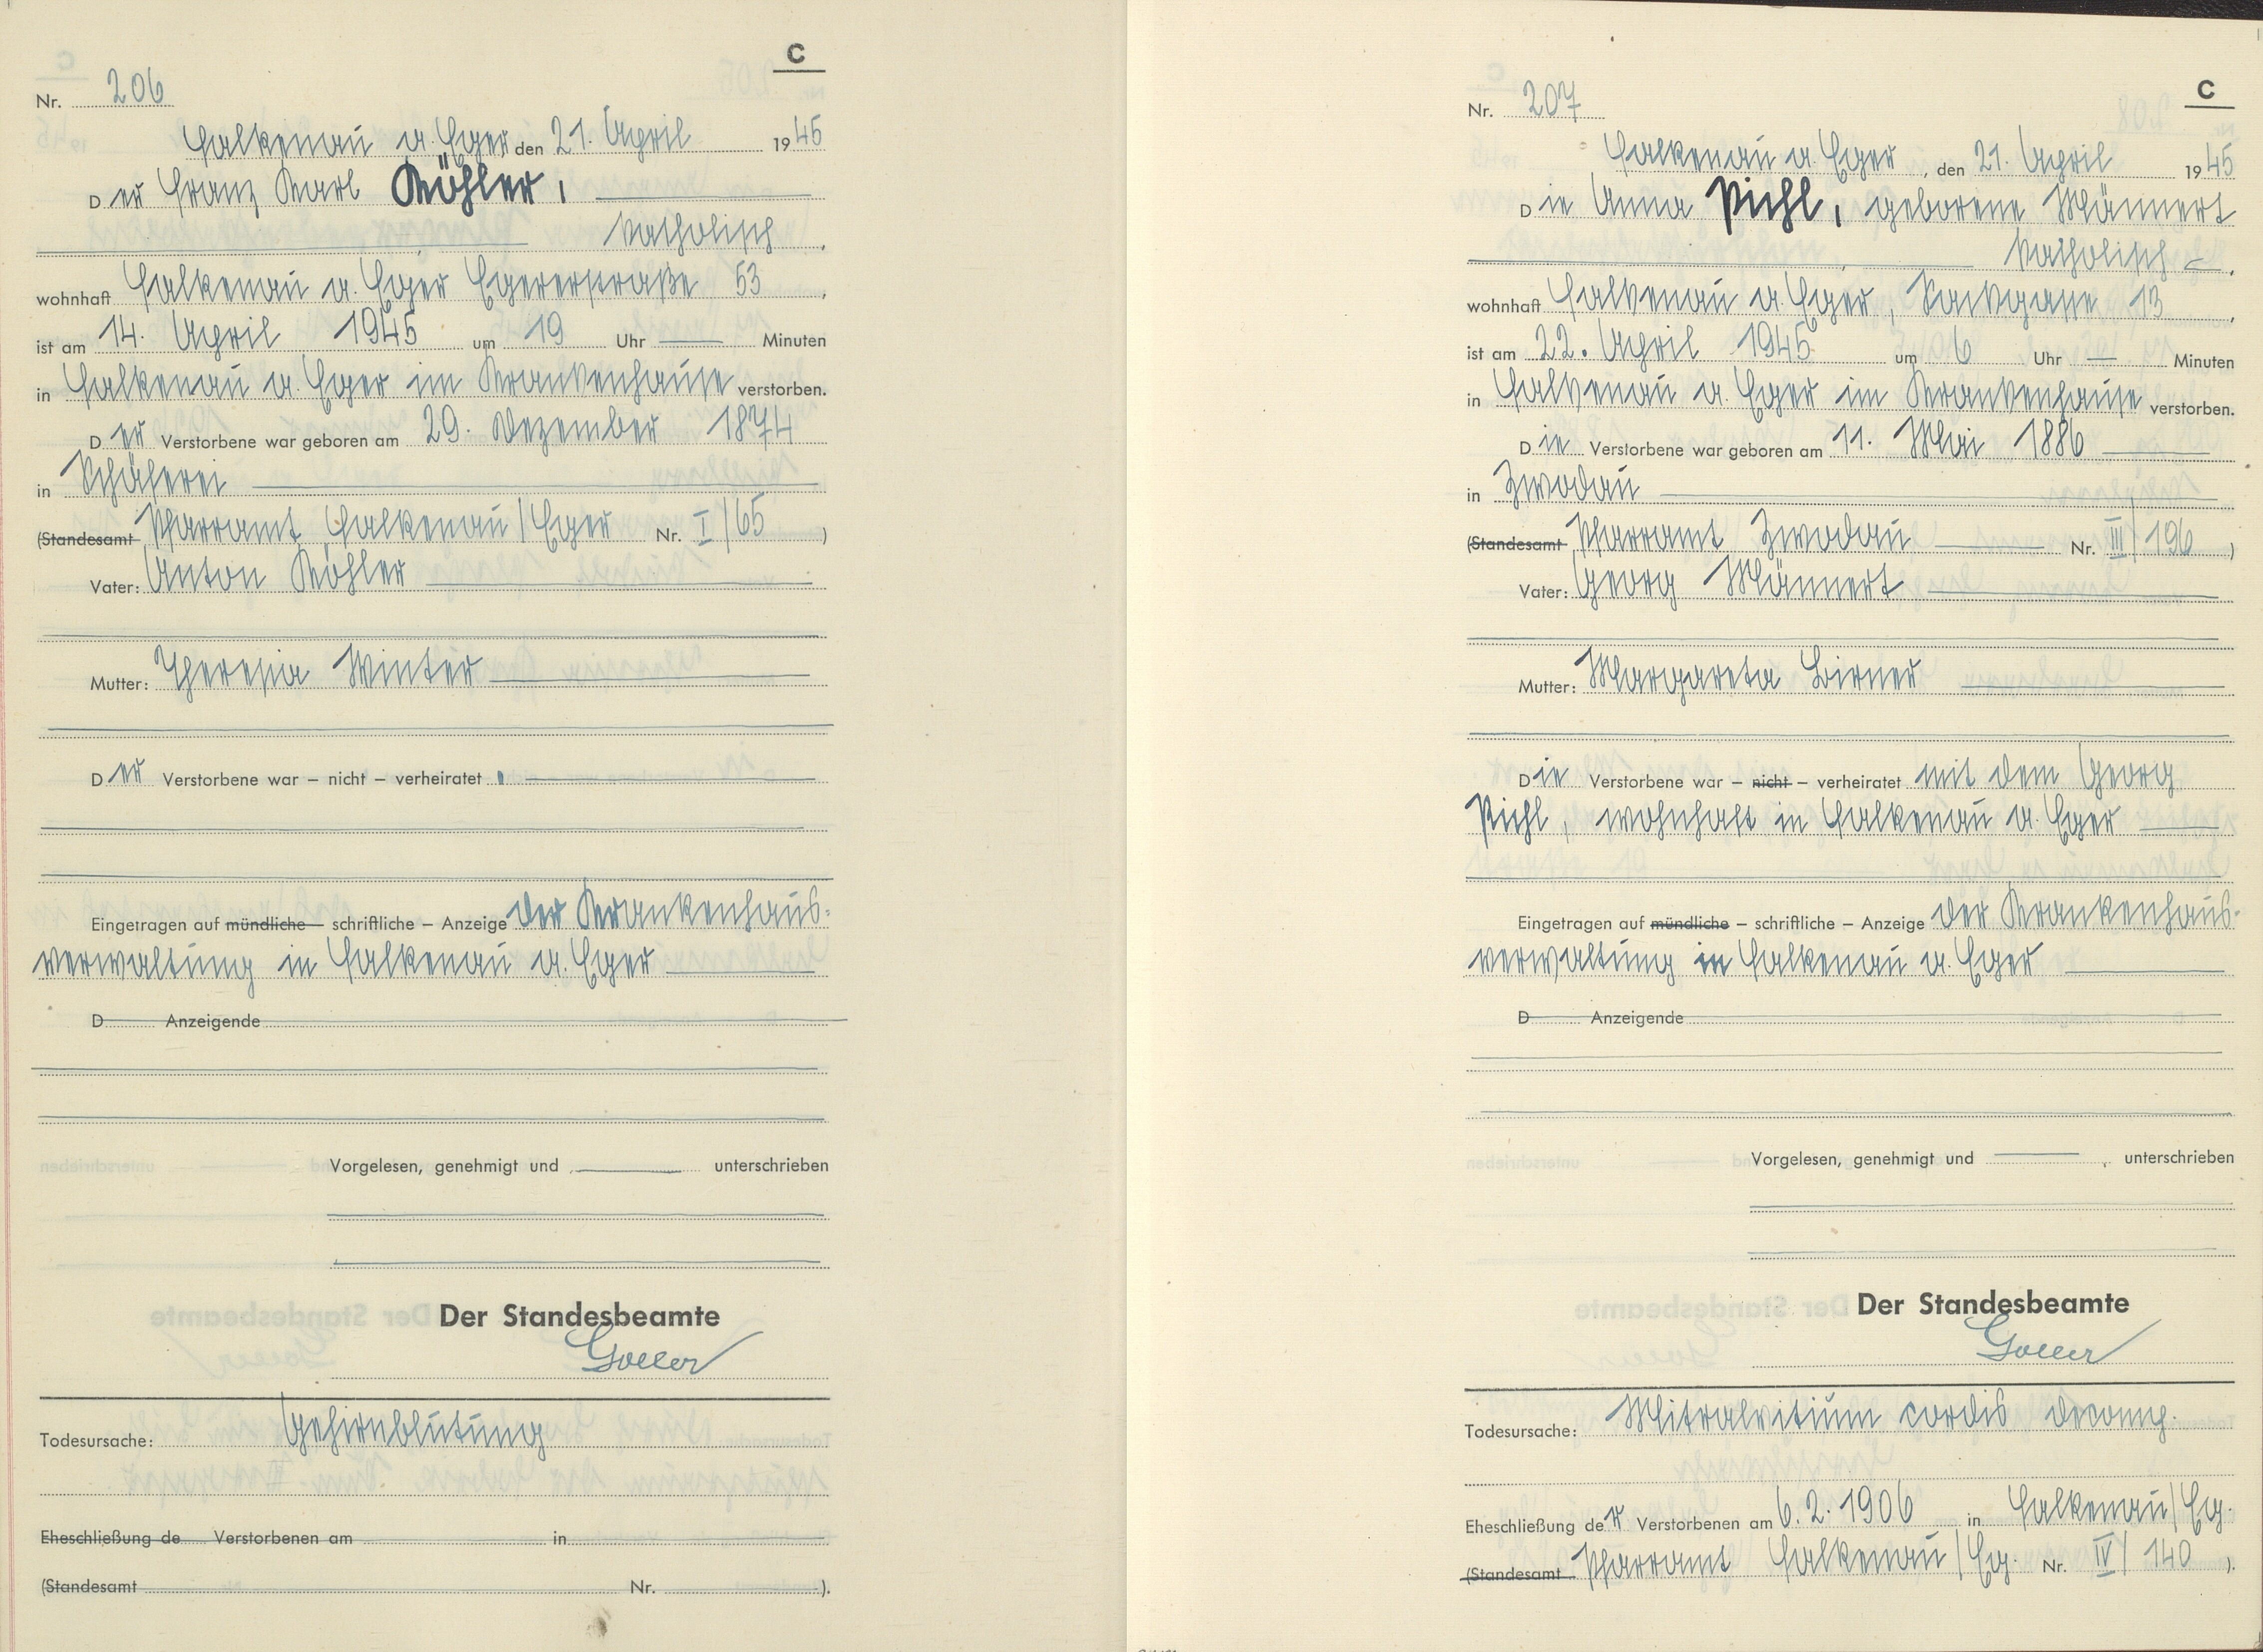 C
Nr. 206
Falkenau a. Eger den 21. April 1945
Der Franz Karl Köhler,
katholisch,
wohnhaft Falkenau a. Eger Egererstraße 53,
ist am 14. April 1945 um 19 Uhr Minuten
in Falkenau a. Eger im Krankenhause verstorben.
Der Verstorbene war geboren am 29. Dezember 1874
in Schäferei
(Standesamt Pfarramt Falkenau/Eger Nr. I/65)
Vater: Anton Köhler
Mutter: Theresia Winter
Der Verstorbene war – nicht – verheiratet
Eingetragen auf mündliche – schriftliche – Anzeige der Krankenhaus-
verwaltung in Falkenau a. Eger
D Anzeigende
Vorgelesen, genehmigt und unterschrieben
Der Standesbeamte
Goller
Todesursache: Gehirnblutung
Eheschließung de Verstorbenen am in
(Standesamt Nr. ).
C
Nr. 207
Falkenau a. Eger, den 21. April 1945
Die Anna Pichl, geborene Männert
katholisch,
wohnhaft Falkenau a. Eger, Sackgasse 13,
ist am 22. April 1945 um 6 Uhr — Minuten
in Falkenau a. Eger im Krankenhause verstorben.
Die Verstorbene war geboren am 11. Mai 1886
in Zwodau
(Standesamt Pfarramt Zwodau Nr. III/196)
Vater: Georg Männert
Mutter: Margareta Birner
Die Verstorbene war – nicht – verheiratet mit dem Georg
Pichl, wohnhaft in Falkenau a. Eger
Eingetragen auf mündliche – schriftliche – Anzeige der Krankenhaus-
verwaltung in Falkenau a. Eger
D Anzeigende
Vorgelesen, genehmigt und unterschrieben
Der Standesbeamte
Goller
Todesursache: Mitralvitium cordis decomp.
Eheschließung der Verstorbenen am 6. 2. 1906 in Falkenau/Eg.
(Standesamt Pfarramt Falkenau/Eg. Nr. IV/140).